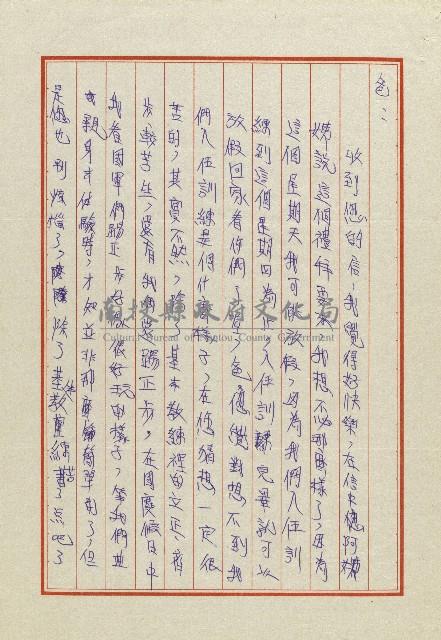 爸：
收到您的信，我覺得好快樂，在信中聽阿嬤
嬤說這個禮拜要來，我想不必那麼麻煩了，因為
這個星期天我可以放假，因為我們入伍訓
練到這個星期四為止，入伍訓練完畢就可以
放假回家看你們了，爸，您絕對想不到我
們入伍訓練是個什麼樣子，在您猜想一定很
苦的，其實不然，除了基本教練裡的立正、齊
步，較苦些，還有我們踢正步。在國慶假日中
我看國軍們踢正步好像很好玩的樣子，等我們
親身才体驗時，才知並非那麼簡單的了，但
是您也別煩惱了，除了基教練苦了点吧了
南投縣政府文化局
Cultural Bureau of Nantou County Government